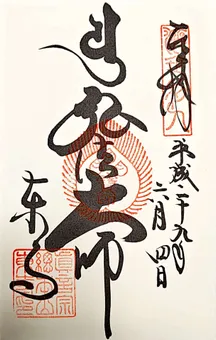 奉拝
平成二十九年
六月四日
弘法大師
東寺